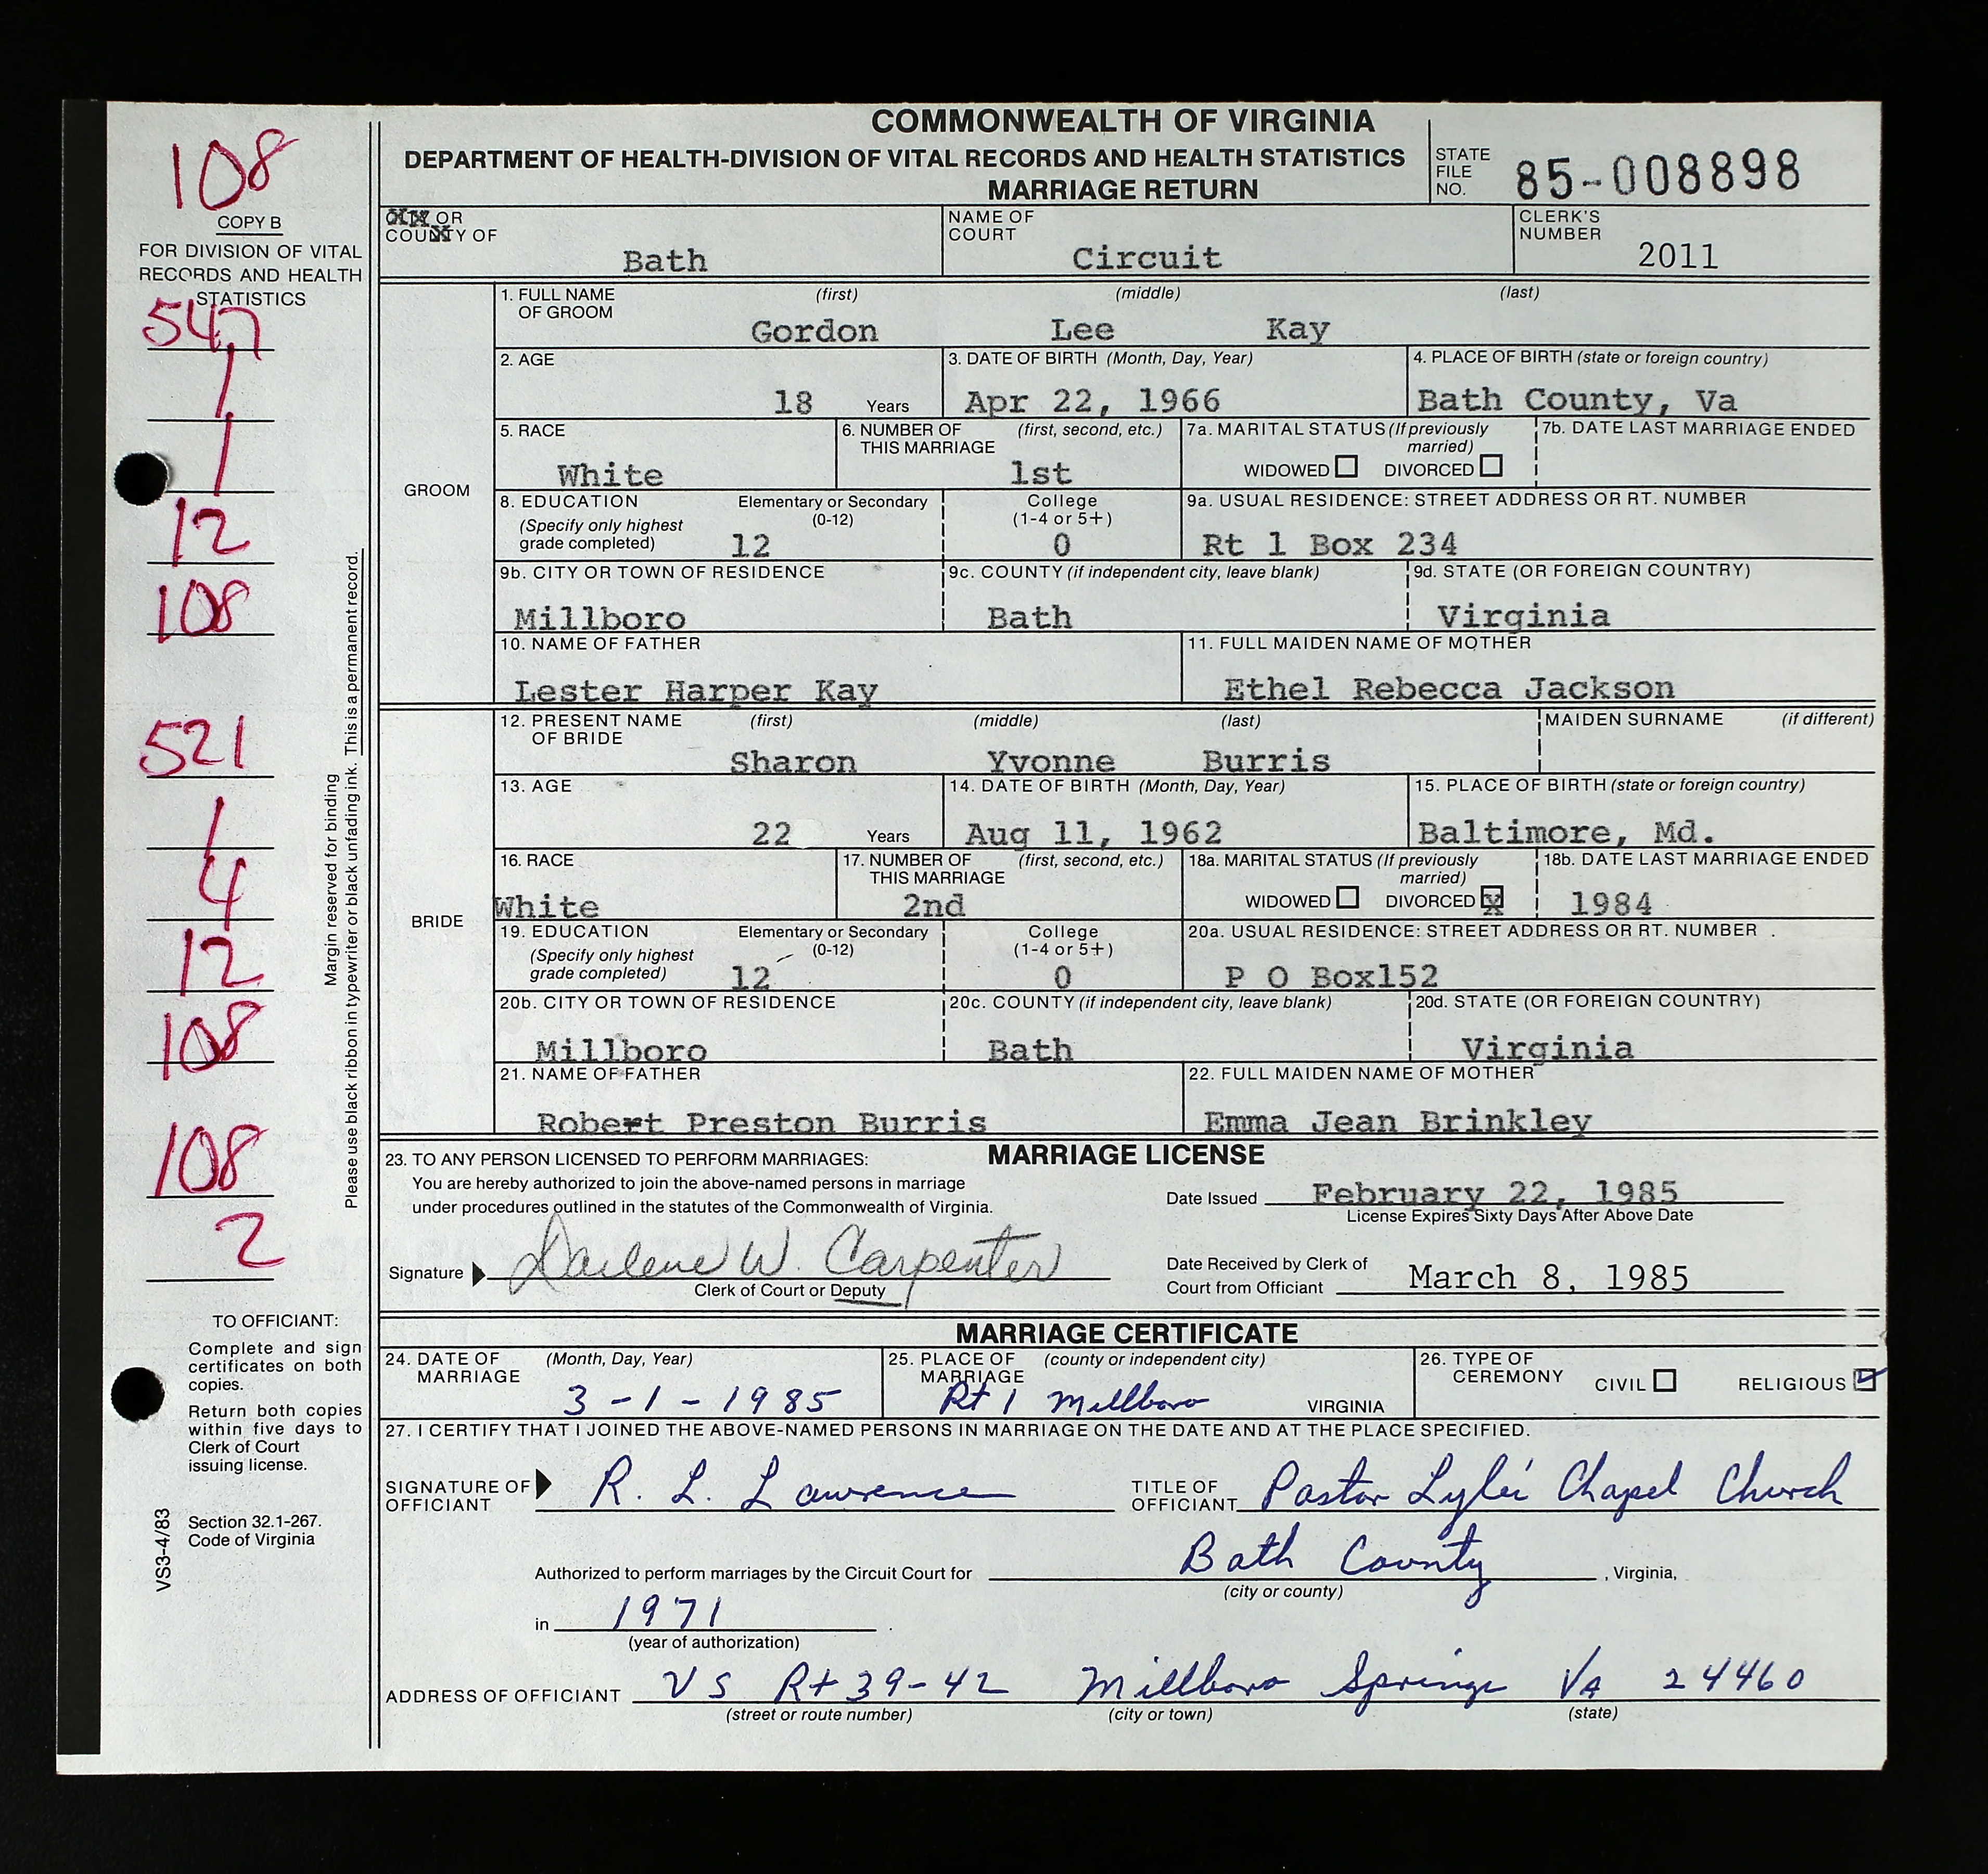 COMMONWEALTH OF VIRGINIA
DEPARTMENT OF HEALTH-DIVISION OF VITAL RECORDS AND HEALTH STATISTICS
MARRIAGE RETURN
STATE FILE NO. 85-008898
108
COPY B
FOR DIVISION OF VITAL
RECORDS AND HEALTH
STATISTICS
547
1
1
12
108
521
1
4
12
108
108
2
Margin reserved for binding
Please use black ribbon in typewriter or black unfading ink. This is a permanent record.
TO OFFICIANT:
Complete and sign
certificates on both
copies.
Return both copies
within five days to
Clerk of Court
issuing license.
Section 32.1-267.
Code of Virginia
VS3-4/83
OR COUNTY OF Bath
NAME OF COURT Circuit
CLERK'S NUMBER 2011
GROOM
1. FULL NAME OF GROOM (first) (middle) (last)
Gordon Lee Kay
2. AGE 18 Years
3. DATE OF BIRTH (Month, Day, Year) Apr 22, 1966
4. PLACE OF BIRTH (state or foreign country) Bath County, Va
5. RACE White
6. NUMBER OF THIS MARRIAGE (first, second, etc.) 1st
7a. MARITAL STATUS (If previously married) WIDOWED DIVORCED
7b. DATE LAST MARRIAGE ENDED
8. EDUCATION (Specify only highest grade completed) Elementary or Secondary (0-12) 12 College (1-4 or 5+) 0
9a. USUAL RESIDENCE: STREET ADDRESS OR RT. NUMBER Rt 1 Box 234
9b. CITY OR TOWN OF RESIDENCE Millboro
9c. COUNTY (if independent city, leave blank) Bath
9d. STATE (OR FOREIGN COUNTRY) Virginia
10. NAME OF FATHER Lester Harper Kay
11. FULL MAIDEN NAME OF MOTHER Ethel Rebecca Jackson
BRIDE
12. PRESENT NAME OF BRIDE (first) (middle) (last) MAIDEN SURNAME (if different)
Sharon Yvonne Burris
13. AGE 22 Years
14. DATE OF BIRTH (Month, Day, Year) Aug 11, 1962
15. PLACE OF BIRTH (state or foreign country) Baltimore, Md.
16. RACE White
17. NUMBER OF THIS MARRIAGE (first, second, etc.) 2nd
18a. MARITAL STATUS (If previously married) WIDOWED DIVORCED X
18b. DATE LAST MARRIAGE ENDED 1984
19. EDUCATION (Specify only highest grade completed) Elementary or Secondary (0-12) 12 College (1-4 or 5+) 0
20a. USUAL RESIDENCE: STREET ADDRESS OR RT. NUMBER P O Box152
20b. CITY OR TOWN OF RESIDENCE Millboro
20c. COUNTY (if independent city, leave blank) Bath
20d. STATE (OR FOREIGN COUNTRY) Virginia
21. NAME OF FATHER Robert Preston Burris
22. FULL MAIDEN NAME OF MOTHER Emma Jean Brinkley
MARRIAGE LICENSE
23. TO ANY PERSON LICENSED TO PERFORM MARRIAGES:
You are hereby authorized to join the above-named persons in marriage
under procedures outlined in the statutes of the Commonwealth of Virginia.
Date Issued February 22, 1985
License Expires Sixty Days After Above Date
Signature Darlene W. Carpenter
Clerk of Court or Deputy
Date Received by Clerk of
Court from Officiant March 8, 1985
MARRIAGE CERTIFICATE
24. DATE OF MARRIAGE (Month, Day, Year) 3-1-1985
25. PLACE OF MARRIAGE (county or independent city) Rt 1 Millboro VIRGINIA
26. TYPE OF CEREMONY CIVIL RELIGIOUS
27. I CERTIFY THAT I JOINED THE ABOVE-NAMED PERSONS IN MARRIAGE ON THE DATE AND AT THE PLACE SPECIFIED.
SIGNATURE OF OFFICIANT R. L. Lawrence
TITLE OF OFFICIANT Pastor Lyle's Chapel Church
Authorized to perform marriages by the Circuit Court for Bath County, Virginia,
(city or county)
in 1971.
(year of authorization)
ADDRESS OF OFFICIANT VS Rt 39-42 Millboro Springs VA 24460
(street or route number) (city or town) (state)